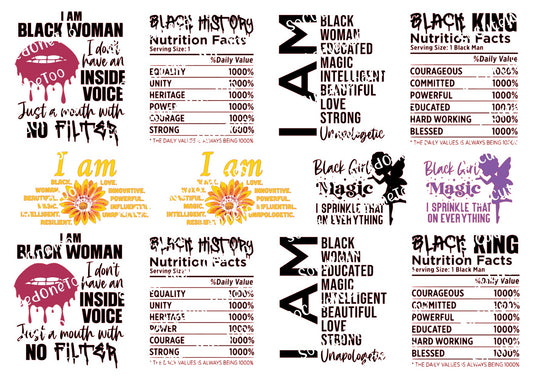 I AM
BLACK WOMAN
I don't
have an
INSIDE
VOICE
Just a mouth with
NO FILTER
BLACK HISTORY
Nutrition Facts
Serving Size: 1
%Daily Value
EQUALITY 1000%
UNITY 1000%
HERITAGE 1000%
POWER 1000%
COURAGE 1000%
STRONG 1000%
* THE DAILY VALUES IS ALWAYS BEING 1000%
I AM
BLACK
WOMAN
EDUCATED
MAGIC
INTELLIGENT
BEAUTIFUL
LOVE
STRONG
Unapologetic
BLACK KING
Nutrition Facts
Serving Size: 1 Black Man
%Daily Value
COURAGEOUS 1000%
COMMITTED 1000%
POWERFUL 1000%
EDUCATED 1000%
HARD WORKING 1000%
BLESSED 1000%
* THE DAILY VALUES IS ALWAYS BEING 1000%
I am
BLACK. LOVE.
WOMAN. INNOVATIVE.
BEAUTIFUL. POWERFUL.
MAGIC. INFLUENTIAL.
INTELLIGENT.
RESILIENT. UNAPOLOGETIC.
I am
BLACK. LOVE.
WOMAN. INNOVATIVE.
BEAUTIFUL. POWERFUL.
MAGIC. INFLUENTIAL.
INTELLIGENT.
RESILIENT. UNAPOLOGETIC.
Black Girl
Magic
I SPRINKLE THAT
ON EVERYTHING
Black Girl
Magic
I SPRINKLE THAT
ON EVERYTHING
I AM
BLACK WOMAN
I don't
have an
INSIDE
VOICE
Just a mouth with
NO FILTER
BLACK HISTORY
Nutrition Facts
Serving Size: 1
%Daily Value
EQUALITY 1000%
UNITY 1000%
HERITAGE 1000%
POWER 1000%
COURAGE 1000%
STRONG 1000%
* THE DAILY VALUES IS ALWAYS BEING 1000%
I AM
BLACK
WOMAN
EDUCATED
MAGIC
INTELLIGENT
BEAUTIFUL
LOVE
STRONG
Unapologetic
BLACK KING
Nutrition Facts
Serving Size: 1 Black Man
%Daily Value
COURAGEOUS 1000%
COMMITTED 1000%
POWERFUL 1000%
EDUCATED 1000%
HARD WORKING 1000%
BLESSED 1000%
* THE DAILY VALUES IS ALWAYS BEING 1000%